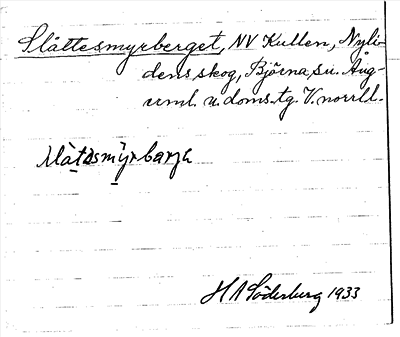 Slåttesmyrberget, NV Kullen, Nyli-
dens skog, Björna sn. Ång-
erml. n. doms.tg. V.norrl.l.
H A Söderberg 1933